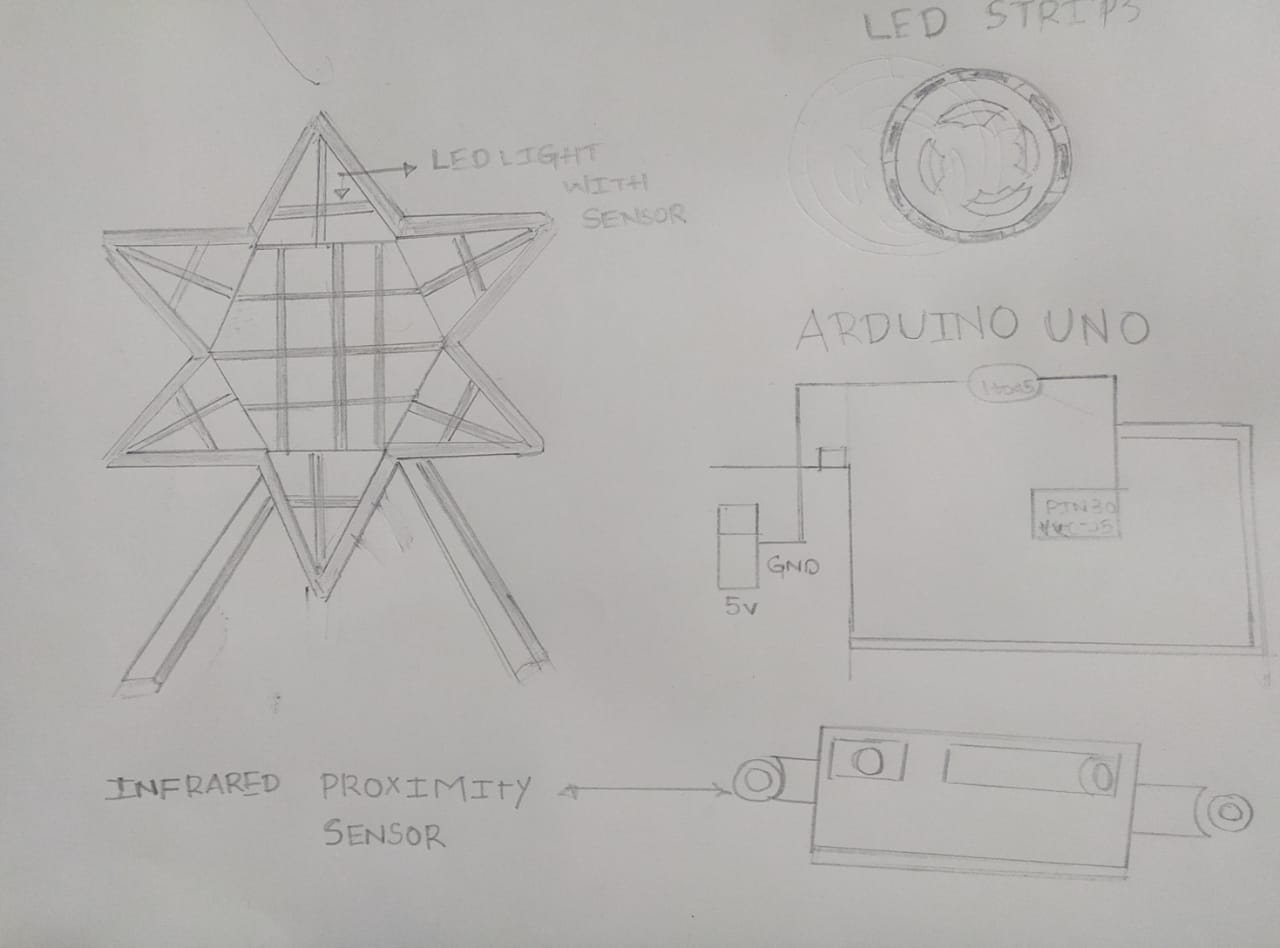 LED STRIPS
LED LIGHT
WITH
SENSOR
ARDUINO UNO
PIN30
GND
5v
INFRARED PROXIMITY
SENSOR